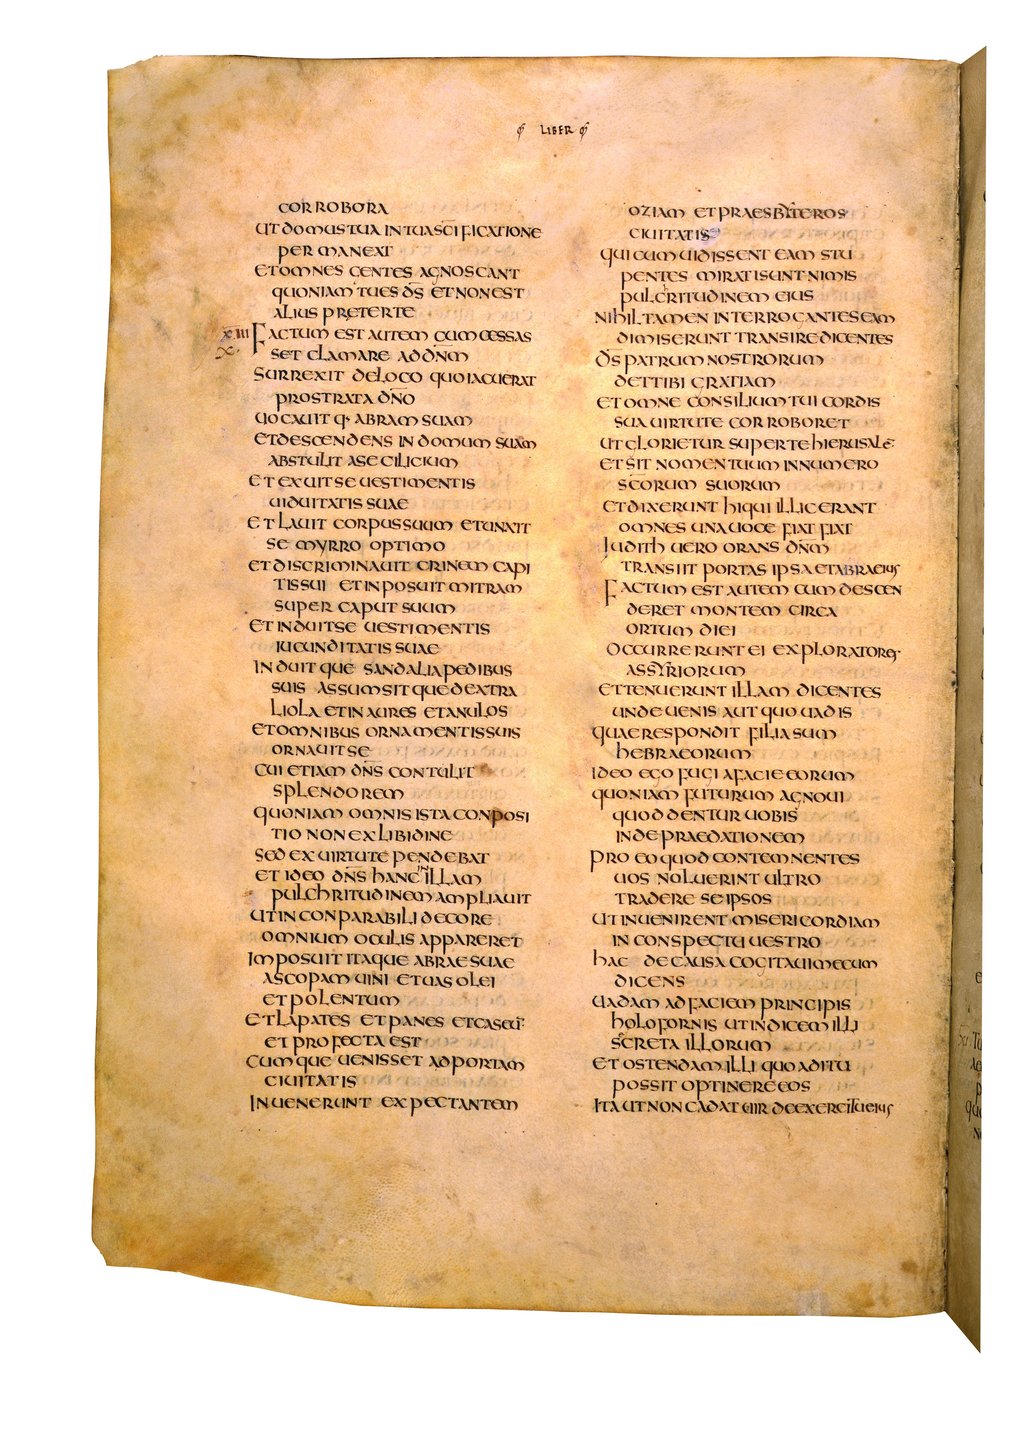 LIBER
CORROBORA
UT DOMUS TUA IN TUA SC̄IFICATIONE
PERMANEAT
ET OMNES GENTES AGNOSCANT
QUONIAM TU ES D̄S ET NON EST
ALIUS PRETER TE
XIII FACTUM EST AUTEM CUM CESSAS
X SET CLAMARE AD DN̄M
SURREXIT DE LOCO QUO IACUERAT
PROSTRATA DN̄O
UOCAUITQ· ABRAM SUAM
ET DESCENDENS IN DOMUM SUAM
ABSTULIT A SE CILICIUM
ET EXUIT SE UESTIMENTIS
UIDUITATIS SUAE
ET LAUIT CORPUS SUUM ET UNXIT
SE MYRRO OPTIMO
ET DISCRIMINAUIT CRINEM CAPI
TIS SUI ET INPOSUIT MITRAM
SUPER CAPUT SUUM
ET INDUIT SE UESTIMENTIS
IUCUNDITATIS SUAE
INDUITQUE SANDALIA PEDIBUS
SUIS ASSUMSITQUE DEXTRA
LIOLA ET INAURES ET ANULOS
ET OMNIBUS ORNAMENTIS SUIS
ORNAUIT SE
CUI ETIAM DN̄S CONTULIT
SPLENDOREM
QUONIAM OMNIS ISTA CONPOSI
TIO NON EX LIBIDINE
SED EX UIRTUTE PENDEBAT
ET IDEO DN̄S HANC ILLAM
PULCHRITUDINEM AMPLIAUIT
UT INCONPARABILI DECORE
OMNIUM OCULIS APPARERET
IMPOSUIT ITAQUE ABRAE SUAE
ASCOPAM UINI ET UAS OLEI
ET POLENTUM
ET LAPATES ET PANES ET CASEU·
ET PROFECTA EST
CUMQUE UENISSET AD PORTAM
CIUITATIS
INUENERUNT EXPECTANTEM
OZIAM ET PRAESBYTEROS
CIUITATIS
QUI CUM UIDISSENT EAM STU
PENTES MIRATI SUNT NIMIS
PULCRITUDINEM EIUS
NIHIL TAMEN INTERROGANTES EAM
DIMISERUNT TRANSIRE DICENTES
D̄S PATRUM NOSTRORUM
DET TIBI GRATIAM
ET OMNE CONSILIUM TUI CORDIS
SUA UIRTUTE CORROBORET
UT GLORIETUR SUPER TE HIERUSALE·
ET SIT NOMEN TUUM IN NUMERO
SC̄ORUM SUORUM
ET DIXERUNT HI QUI ILLIC ERANT
OMNES UNA UOCE FIAT FIAT
IUDITH UERO ORANS DN̄M
TRANSIIT PORTAS IPSA ET ABRA EIUS
FACTUM EST AUTEM CUM DESCEN
DERET MONTEM CIRCA
ORTUM DIEI
OCCURRERUNT EI EXPLORATORES
ASSYRIORUM
ET TENUERUNT ILLAM DICENTES
UNDE UENIS AUT QUO UADIS
QUAE RESPONDIT FILIA SUM
HEBRAEORUM
IDEO EGO FUGI A FACIE EORUM
QUONIAM FUTURUM AGNOUI
QUOD DENTUR UOBIS
IN DEPRAEDATIONEM
PRO EO QUOD CONTEMNENTES
UOS NOLUERINT ULTRO
TRADERE SE IPSOS
UT INUENIRENT MISERICORDIAM
IN CONSPECTU UESTRO
HAC DE CAUSA COGITAUI MECUM
DICENS
UADAM AD FACIEM PRINCIPIS
HOLOFORNIS UT INDICEM ILLI
SECRETA ILLORUM
ET OSTENDAM ILLI QUO ADITU
POSSIT OPTINERE EOS
ITA UT NON CADAT UIR DE EXERCITU EIUS